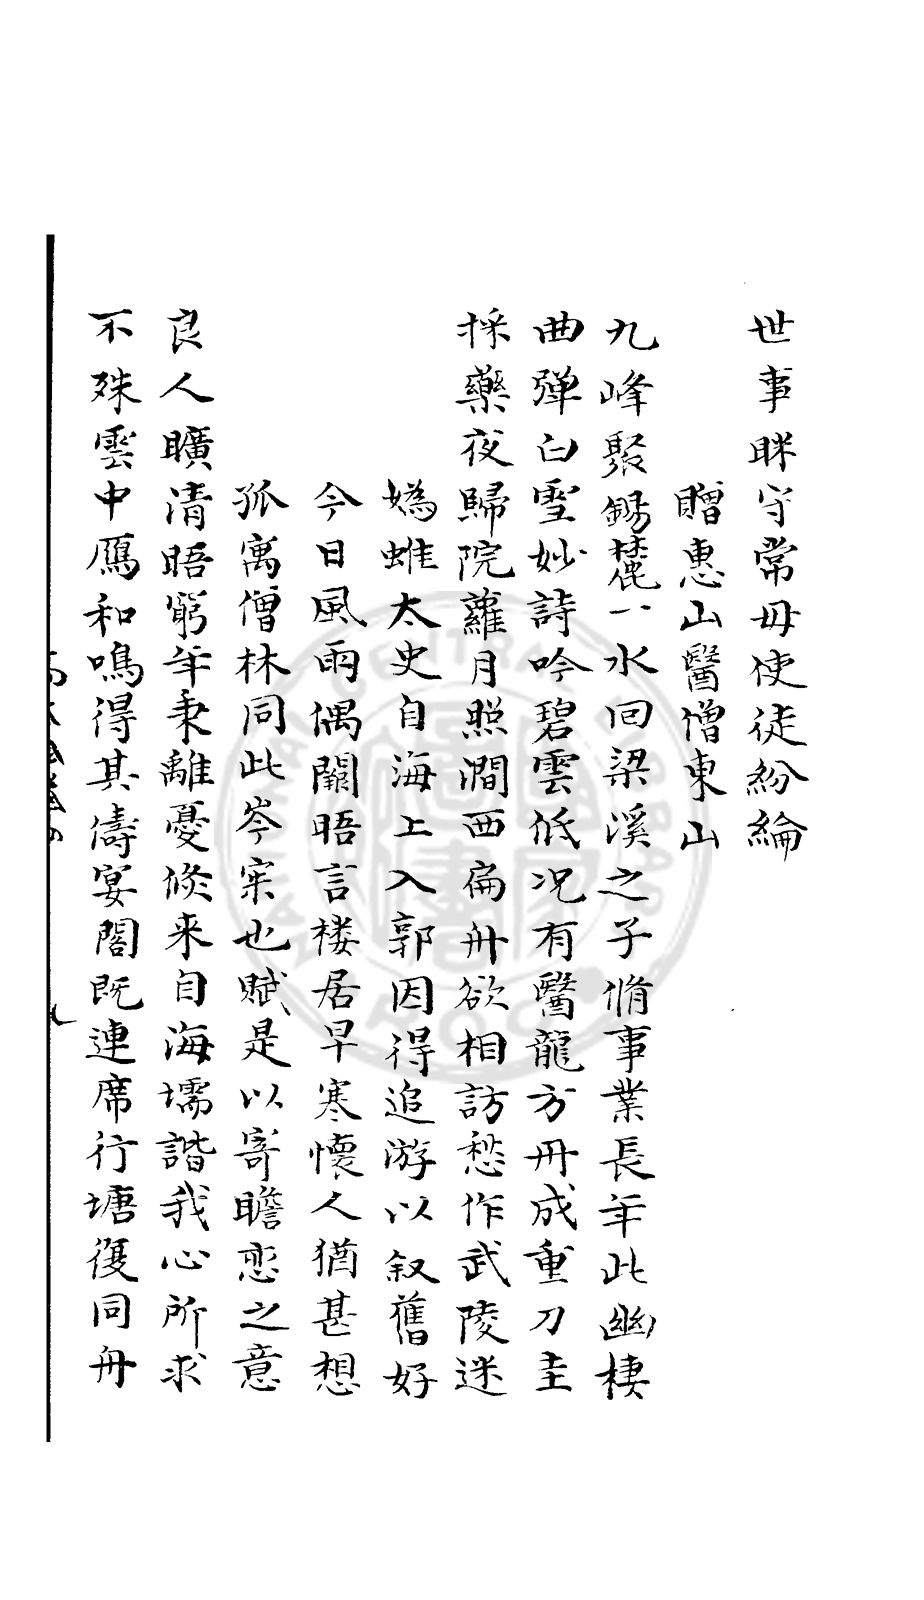 世事眯守常毋使徒紛綸
贈惠山醫僧東山
九峰聚錫麓一水回梁溪之子脩事業長年此幽棲
曲彈白雪妙詩吟碧雲低况有醫龍方冊成重刀圭
採藥夜歸院蘿月照澗西扁舟欲相訪愁作武陵迷
嬀蜼太史自海上入郭因得追游以叙舊好
今日風雨偶闌晤言楼居早寒懷人猶甚想
孤寓僧林同此岑寀也賦是以寄瞻恋之意
良人曠清晤窮年秉離憂倐来自海壖諧我心所求
不殊雲中鴈和鳴得其儔宴閣既連席行塘復同舟